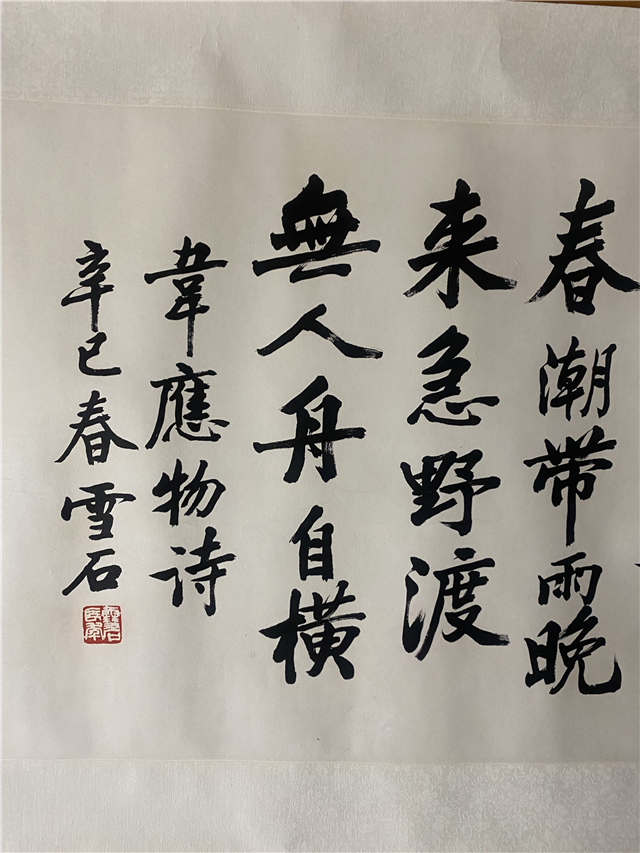 春潮带雨晚
来急野渡
無人舟自横
韋應物诗
辛巳春雪石